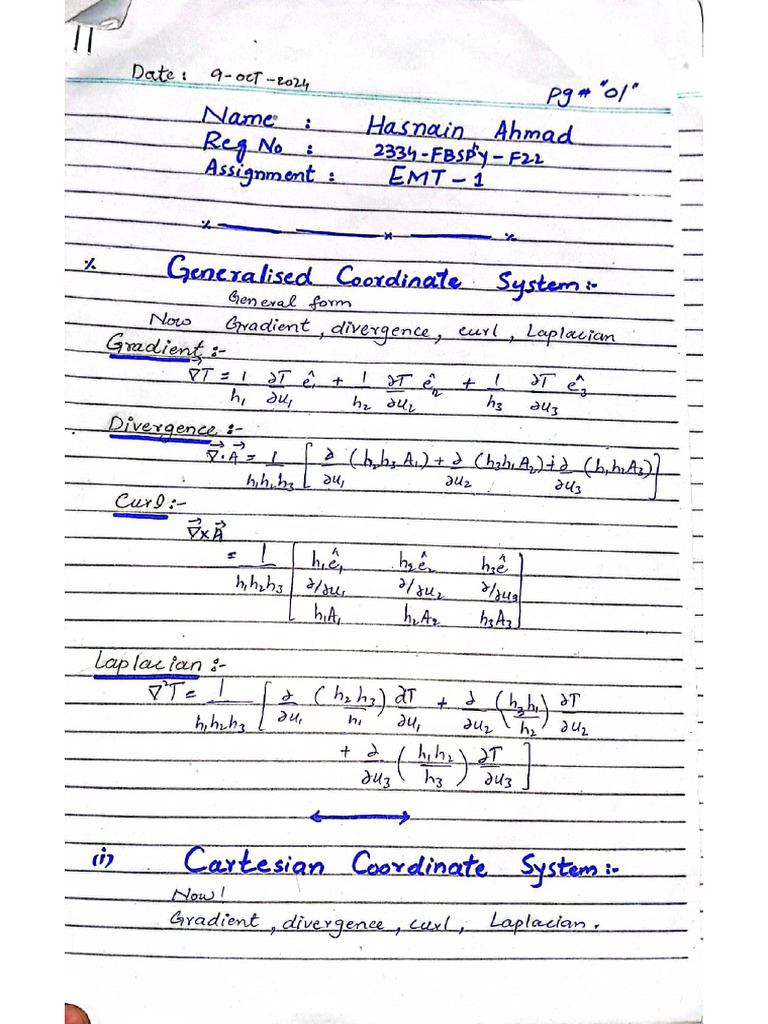 Date: 9-OCT-2024
Pg # "01"
Name : Hasnain Ahmad
Reg No : 2334-FBSPY-F22
Assignment : EMT-1
Generalised Coordinate System:-
General form
Now Gradient, divergence, curl, Laplacian
Gradient:-
∇⃗T = 1/h₁ ∂T/∂u₁ ê₁ + 1/h₂ ∂T/∂u₂ ê₂ + 1/h₃ ∂T/∂u₃ ê₃
Divergence:-
∇⃗·A⃗ = 1/h₁h₂h₃ [∂/∂u₁ (h₂h₃A₁) + ∂/∂u₂ (h₃h₁A₂) + ∂/∂u₃ (h₁h₂A₃)]
Curl:-
∇⃗×A⃗
= 1/h₁h₂h₃ [h₁ê₁ h₂ê₂ h₃ê
∂/∂u₁ ∂/∂u₂ ∂/∂u₃
h₁A₁ h₂A₂ h₃A₃]
Laplacian:-
∇²T = 1/h₁h₂h₃ [∂/∂u₁ (h₂h₃/h₁) ∂T/∂u₁ + ∂/∂u₂ (h₃h₁/h₂) ∂T/∂u₂
+ ∂/∂u₃ (h₁h₂/h₃) ∂T/∂u₃]
(i) Cartesian Coordinate System:-
Now!
Gradient, divergence, curl, Laplacian.